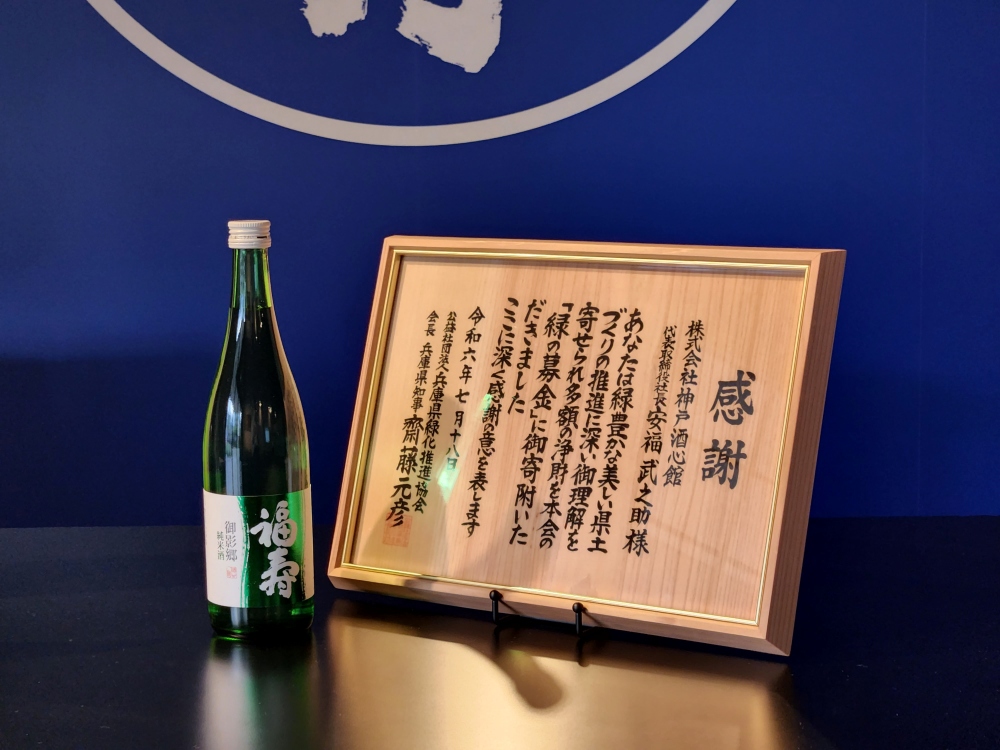 感謝
株式会社神戸酒心館
代表取締役社長 安福 武之助 様
あなたは緑豊かな美しい県土
づくりの推進に深い御理解を
寄せられ多額の浄財を本会の
「緑の募金」に御寄附いた
だきました
ここに深く感謝の意を表します
令和六年七月十八日
公益社団法人兵庫県緑化推進協会
会長 兵庫県知事 齋藤元彦
福寿
御影郷
純米酒